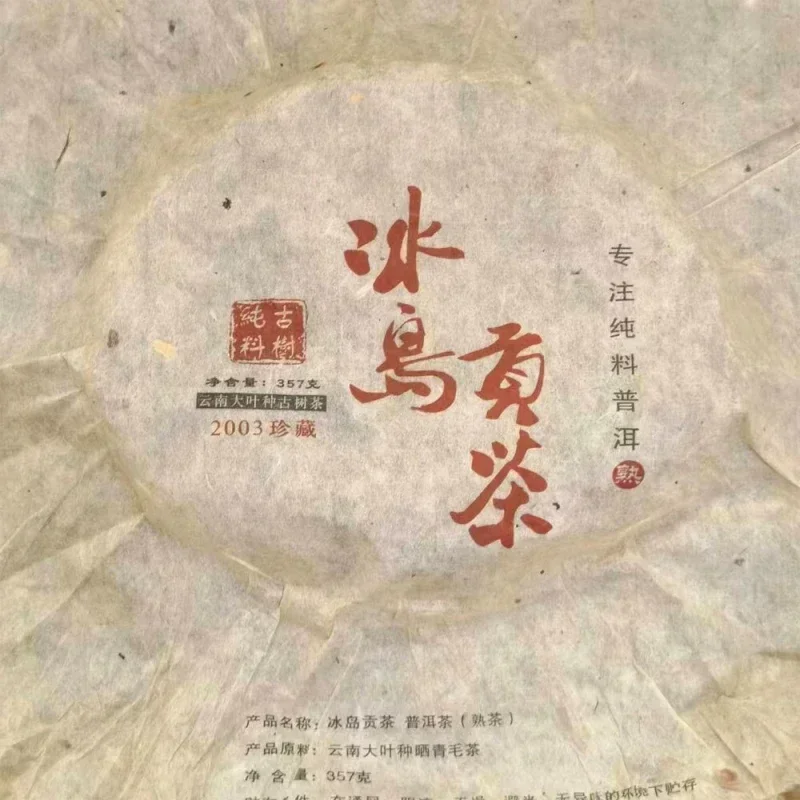 冰島
貢茶
专注纯料普洱
熟
古樹
純料
净含量：357克
云南大叶种古树茶
2003珍藏
产品名称：冰岛贡茶 普洱茶（熟茶）
产品原料：云南大叶种晒青毛茶
净 含 量：357克
无异味的环境下贮存